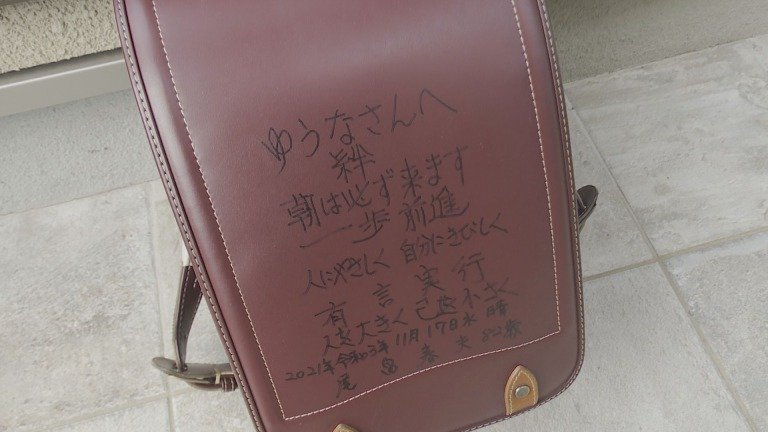 ゆうなさんへ
絆
朝は必ず来ます
一歩前進
人にやさしく 自分にきびしく
有言実行
人を大きく己を小さく
2021年令和3年11月17日水 晴
尾畠春夫 82歳